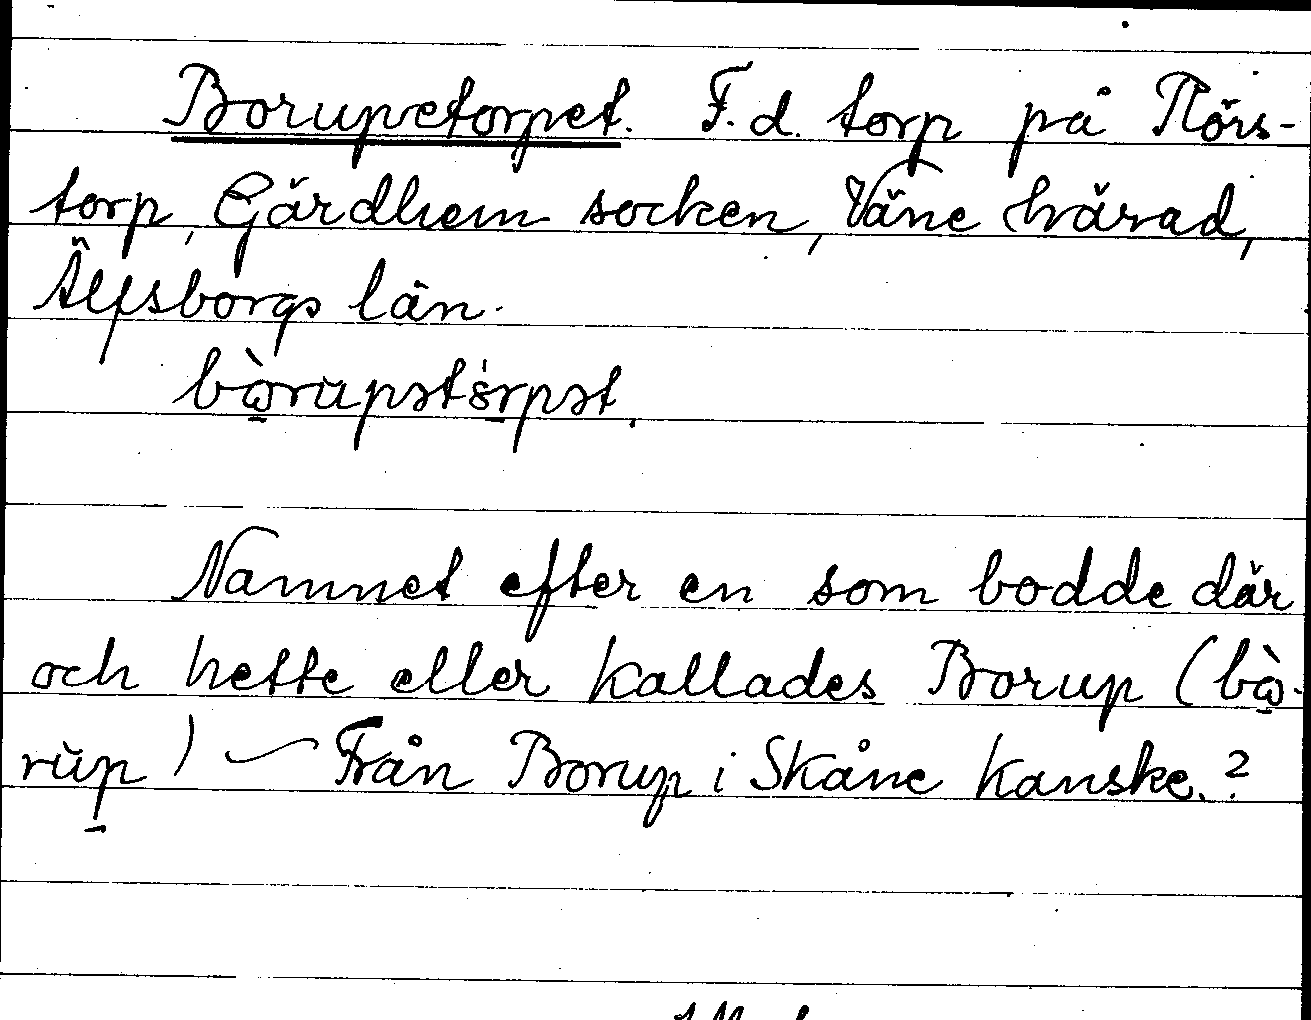 Borupetorpet. F.d. torp på Flörs-
torp, Gärdhem socken, Väne härad,
Älfsborgs län.
bòrupətórpət.
Namnet efter en som bodde där
och hette eller kallades Borup (bò-
rŭp) – Från Borup i Skåne kanske.?